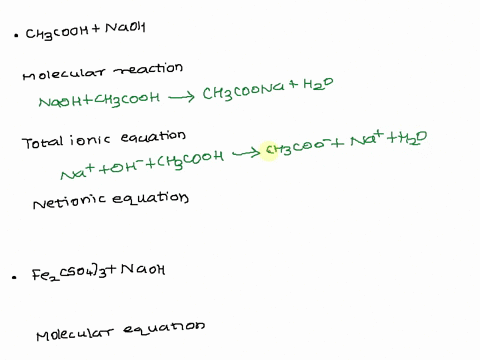 • CH3COOH + NaOH
Molecular reaction
NaOH + CH3COOH → CH3COONa + H2O
Total ionic equation
Na⁺ + OH⁻ + CH3COOH → CH3COO⁻ + Na⁺ + H2O
Net ionic equation
• Fe2(SO4)3 + NaOH
Molecular equation